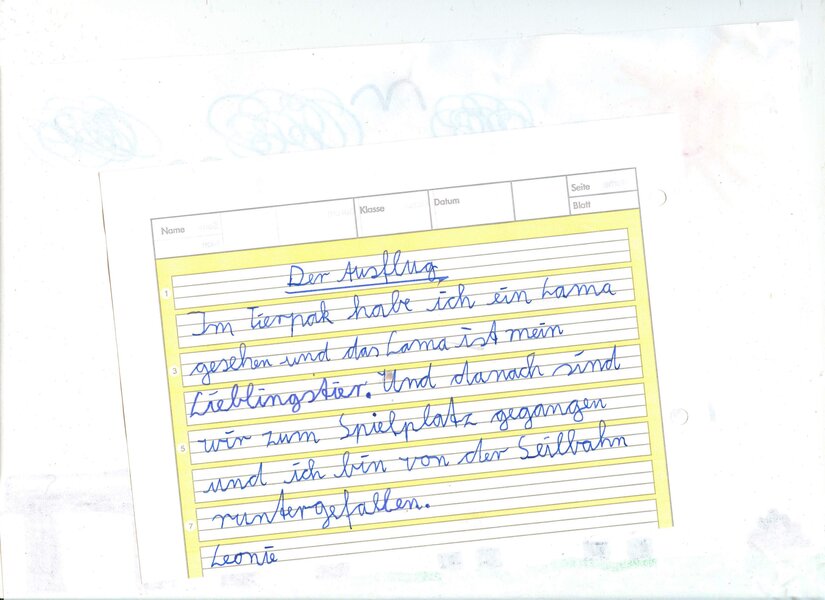 Name Klasse Datum Seite
Blatt
Der Ausflug
1
Im Tierpak habe ich ein Lama
gesehen und das Lama ist mein
3
Lieblingstier. Und danach sind
wir zum Spielplatz gegangen
5
und ich bin von der Seilbahn
runtergefallen.
7
Leonie